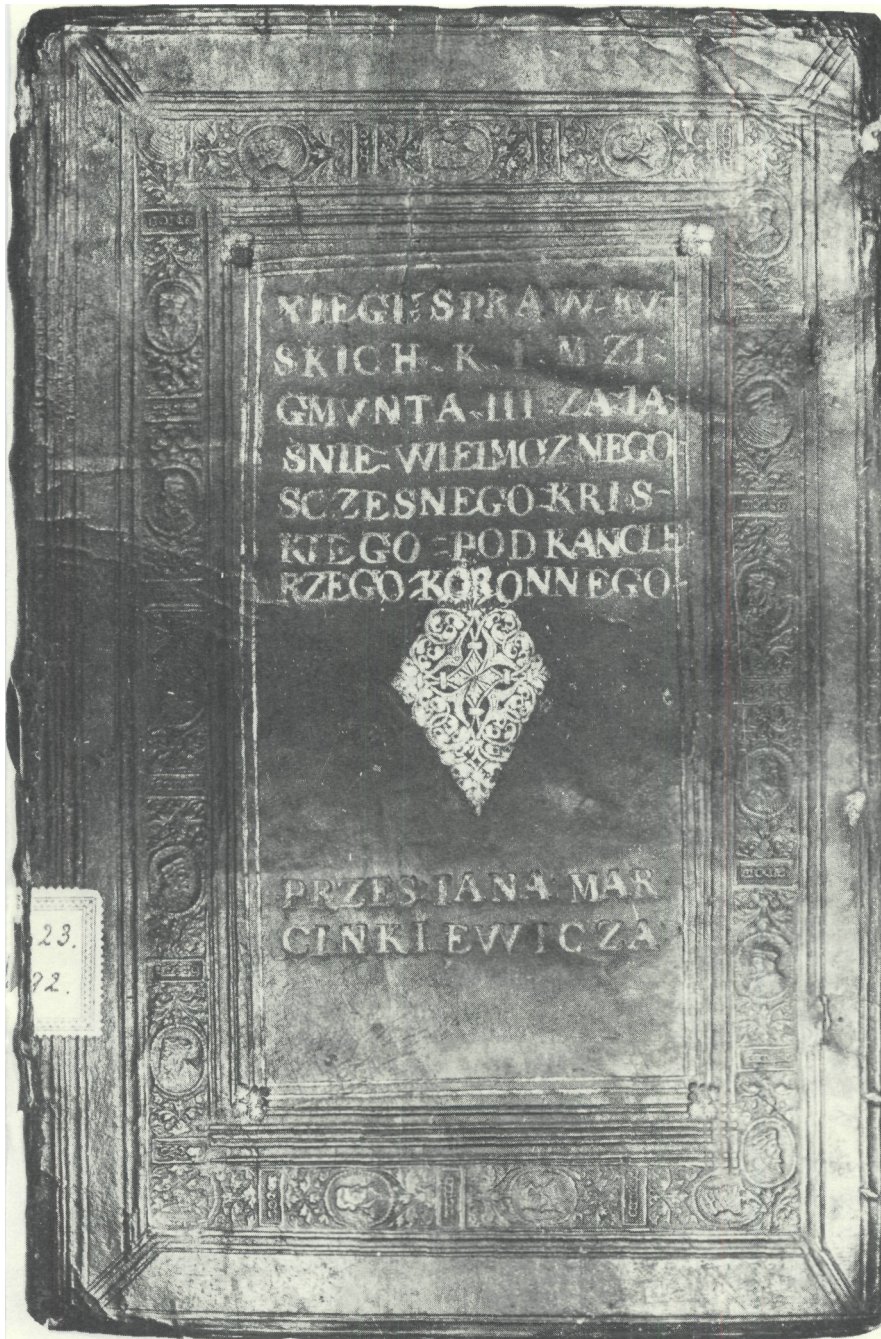 XIEGI SPRAW RV-
SKICH K I M ZI-
GMVNTA III ZA IA
SNIE WIELMOZNEGO
SCZESNEGO KRIS-
KIEGO POD KANCLE
RZEGO KORONNEGO
PRZES IANA MAR
CINKIEWICZA
23.
92.